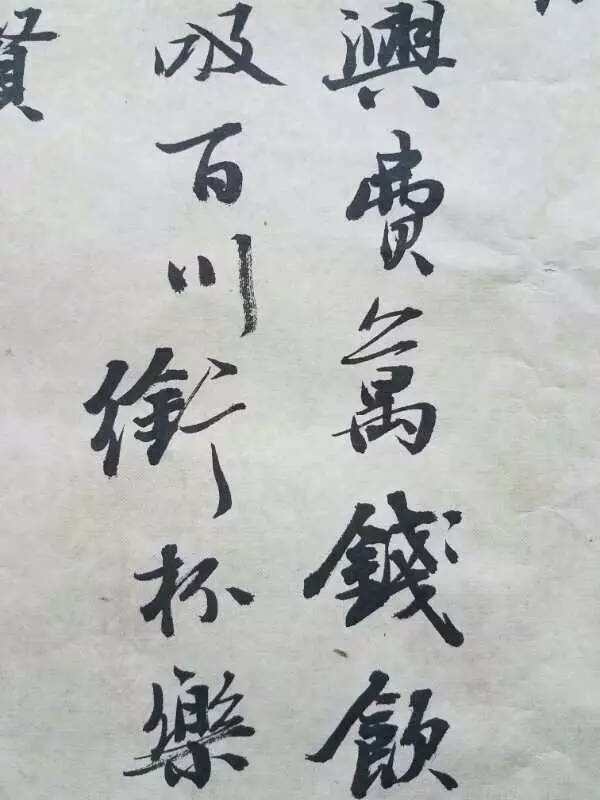 興費萬錢飲
吸百川銜杯樂
賢